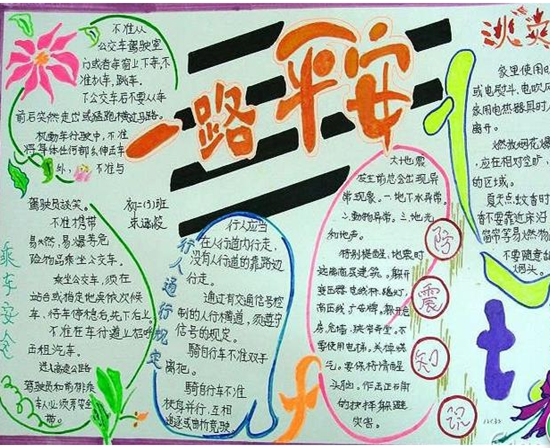 一路平安
不准从
公交车驾驶室
门或者车窗上下车,不
准扒车,跳车。
下公交车后不要从车
前后突然走出或猛跑横过马路。
机动车行驶中,不准
将身体任何部分伸出车
外,不准与
驾驶员谈笑。
不准携带
易燃,易爆等危
险物品乘坐公交车。
乘坐公交车,须在
站台或指定地点依次候
车,待车停稳后先下后上。
不准在车行道上招呼
出租汽车。
驾驶员和前排乘
车人必须系安全
带。
乘车安全
初二(3)班
行人应当
在人行道内行走,
没有人行道的靠路边
行走。
通过有交通信号控
制的人行横道,须遵守
信号的规定。
骑自行车不准双手
离把。
骑自行车不准
扶身并行,互相
追逐或曲折竞驶
行人通行规定
大地震
发生前总会出现异
常现象。一.地下水异常
二.动物异常。三.地光
和地声。
特别提醒,地震时
远离高层建筑。躲开
变压器,电线杆,路灯,
广告牌。躲开危
房,危墙,狭窄街道。不
要使用电梯。关掉煤
气。要保持清醒
头脑。
灾害。
防
震
知
识
家里使用电
或电熨斗、电吹风
家用电热器具时人
离开。
燃放烟花爆
应在相对空旷
的区域。
夏天点蚊香时
香不要靠近床沿
窗帘等易燃物
不要随意
烟头。